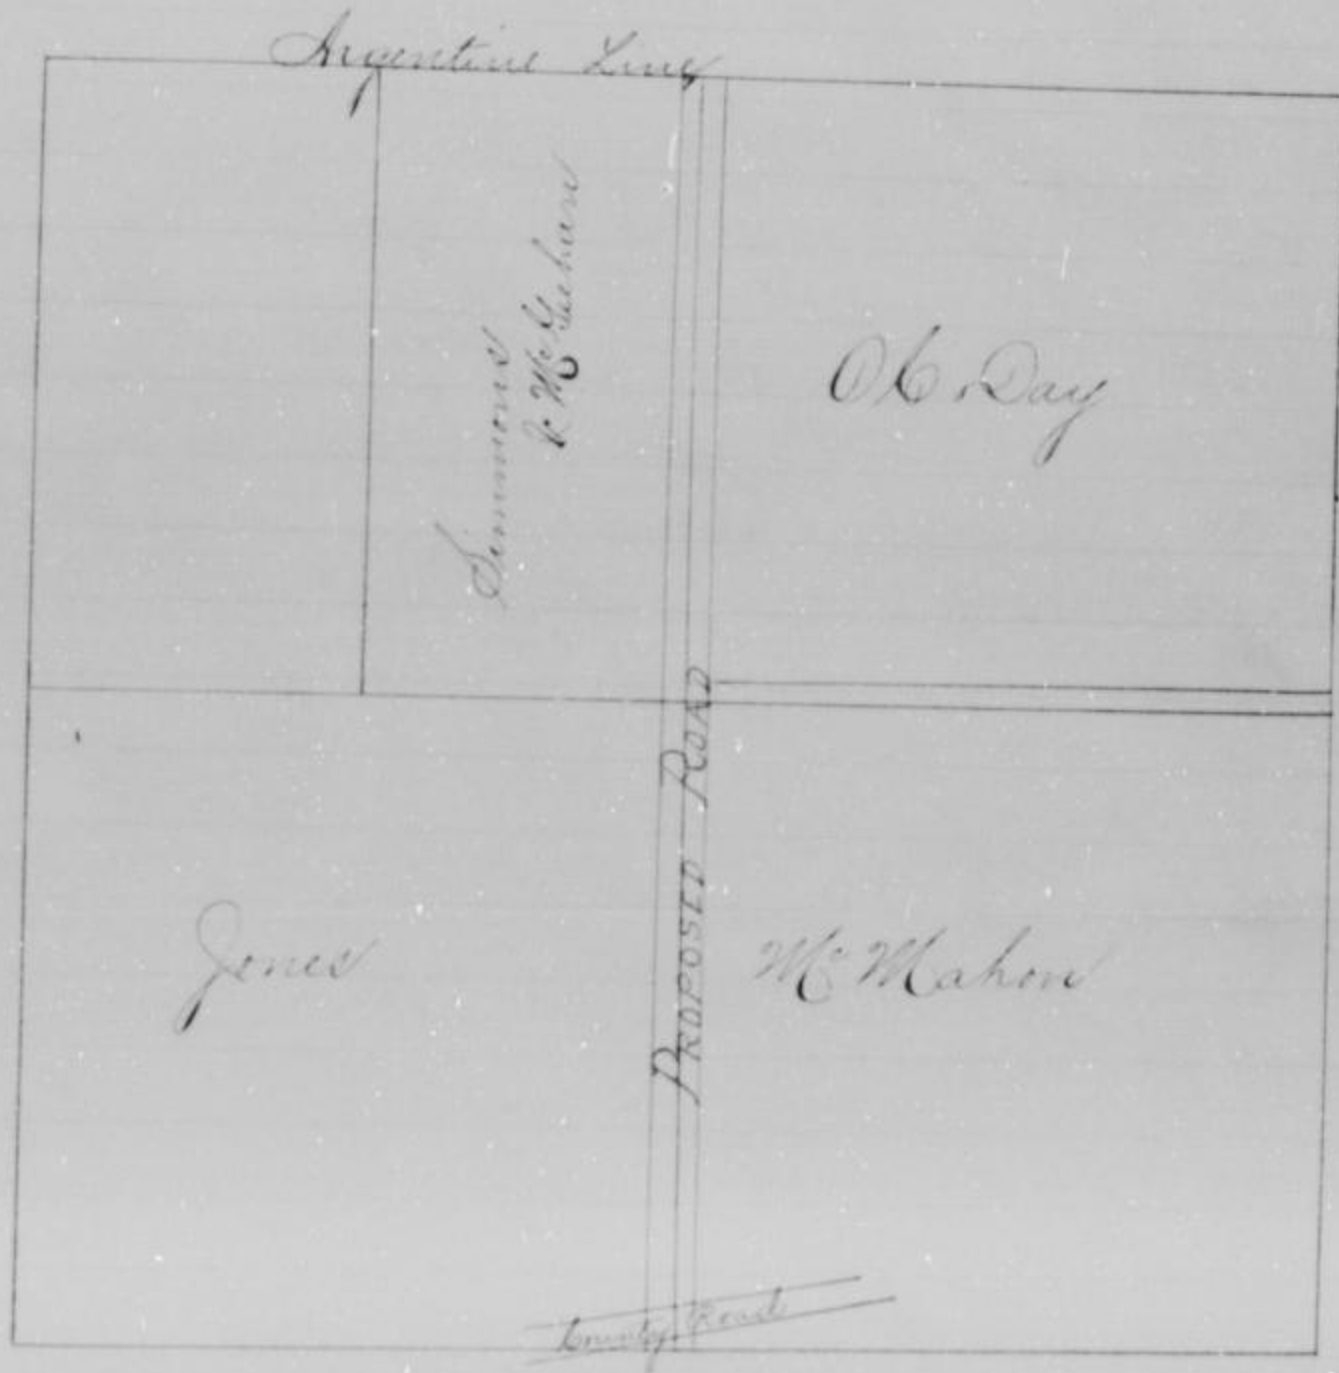 Argentine Line
Simmons
& McGeehan
O C. Day
PROPOSED ROAD
Jones
McMahon
County Road